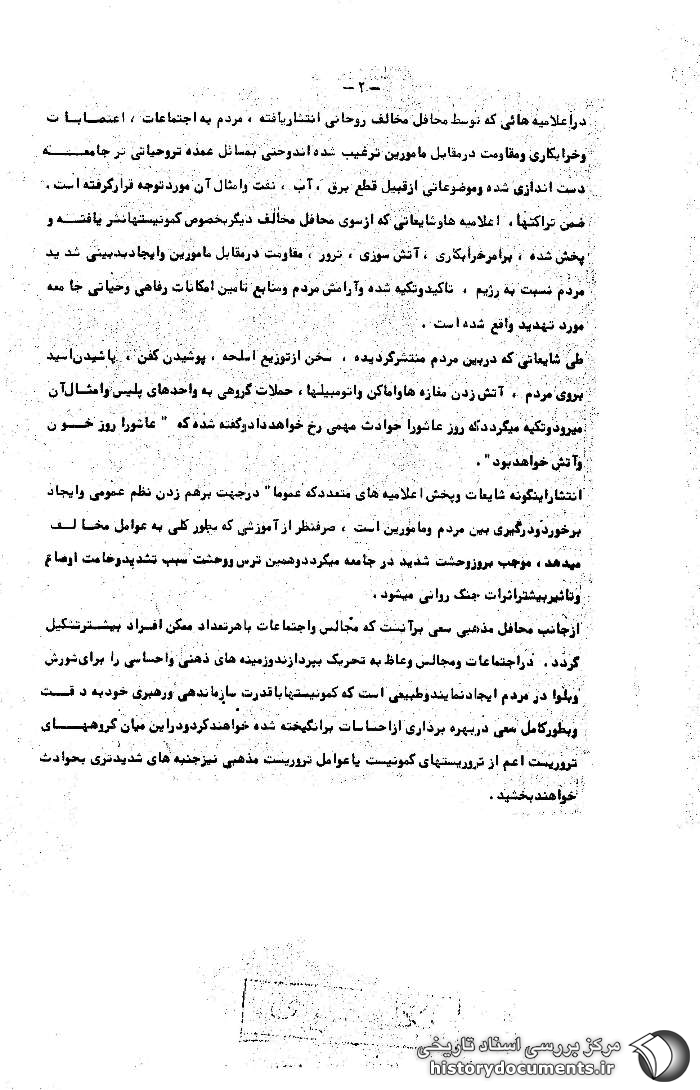 - ۲ -
دراعلامیه هائی که توسط محافل مخالف روحانی انتشاریافته ، مردم به اجتماعات ، اعتصابات
وخرابکاری ومقاومت درمقابل مامورین ترغیب شده اندوحتی بمسائل عمده تروحیاتی تر جامعه
دست اندازی شده وموضوعاتی ازقبیل قطع برق ، آب ، نفت وامثال آن موردتوجه قرارگرفته است .
ضمن تراکتها ، اعلامیه هاوشایعاتی که ازسوی محافل مخالف دیگربخصوص کمونیستهانشر یافته و
پخش شده ، برامرخرابکاری ، آتش سوزی ، ترور ، مقاومت درمقابل مامورین وایجادبدبینی شدید
مردم نسبت به رژیم ، تاکیدوتکیه شده وآرامش مردم ومنابع تامین امکانات رفاهی وحیاتی جامعه
مورد تهدید واقع شده است .
طی شایعاتی که دربین مردم منتشرگردیده ، سخن ازتوزیع اسلحه ، پوشیدن کفن ، پاشیدن اسید
بروی مردم ، آتش زدن مغازه هاواماکن واتومبیلها ، حملات گروهی به واحدهای پلیس وامثال آن
میرودوتکیه میگرددکه روز عاشورا حوادث مهمی رخ خواهددادوگفته شده که " عاشورا روز خون
وآتش خواهدبود " .
انتشاراینگونه شایعات وپخش اعلامیه های متعددکه عموما" درجهت برهم زدن نظم عمومی وایجاد
برخوردودرگیری بین مردم ومامورین است ، صرفنظر ازآموزشی که بطور کلی به عوامل مخالف
میدهد ، موجب بروزوحشت شدید در جامعه میگرددوهمین ترس ووحشت سبب تشدیدوخامت اوضاع
وتاثیربیشتراثرات جنگ روانی میشود .
ازجانب محافل مذهبی سعی برآنست که مجالس واجتماعات باهرتعداد ممکن افراد بیشترتشکیل
گردد . دراجتماعات ومجالس وعاظ به تحریک بپردازندوزمینه های ذهنی واحساسی را برای شورش
وبلوا در مردم ایجادنمایندوطبیعی است که کمونیستهاباقدرت سازماندهی ورهبری خودبه دقت
وبطورکامل سعی دربهره برداری ازاحساسات برانگیخته شده خواهندکردودراین میان گروههای
تروریست اعم از تروریستهای کمونیست یاعوامل تروریست مذهبی نیزجنبه های شدیدتری بحوادث
خواهندبخشید .
مرکز بررسی اسناد تاریخی
historydocuments.ir